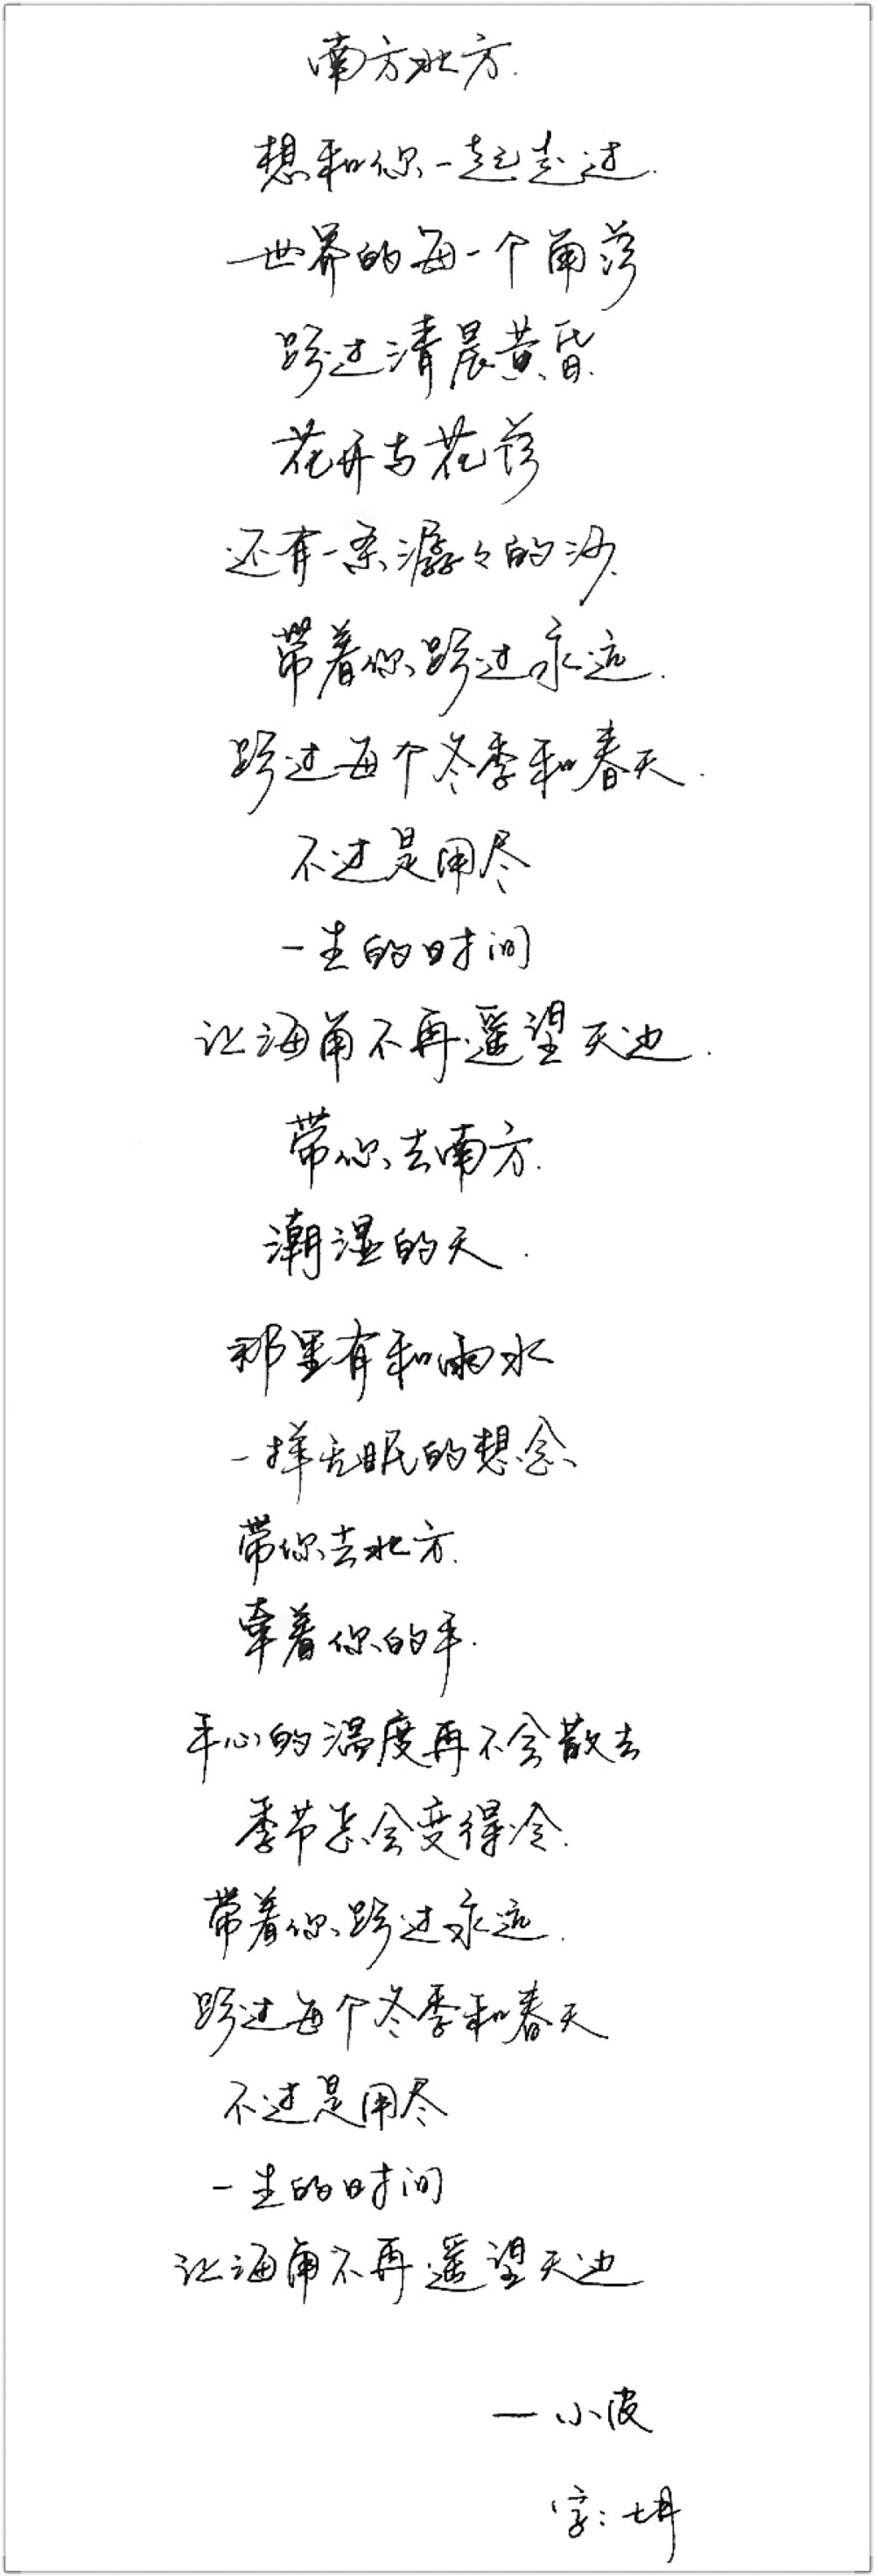 南方北方.
想和你一起走过.
世界的每一个角落
跨过清晨黄昏.
花开与花落
还有一条潺々的
带着你跨过永远.
跨过每个冬季和春天.
不过是用尽
一生的时间
让海角不再遥望天边.
带你去南方.
潮湿的天.
那里有和雨水
一样无眠的想念
带你去北方.
牵着你的手.
手心的温度再不会散去
季节怎会变得冷.
带着你跨过永远.
跨过每个冬季和春天
不过是用尽
一生的时间
让海角不再遥望天边
— 小波
字：